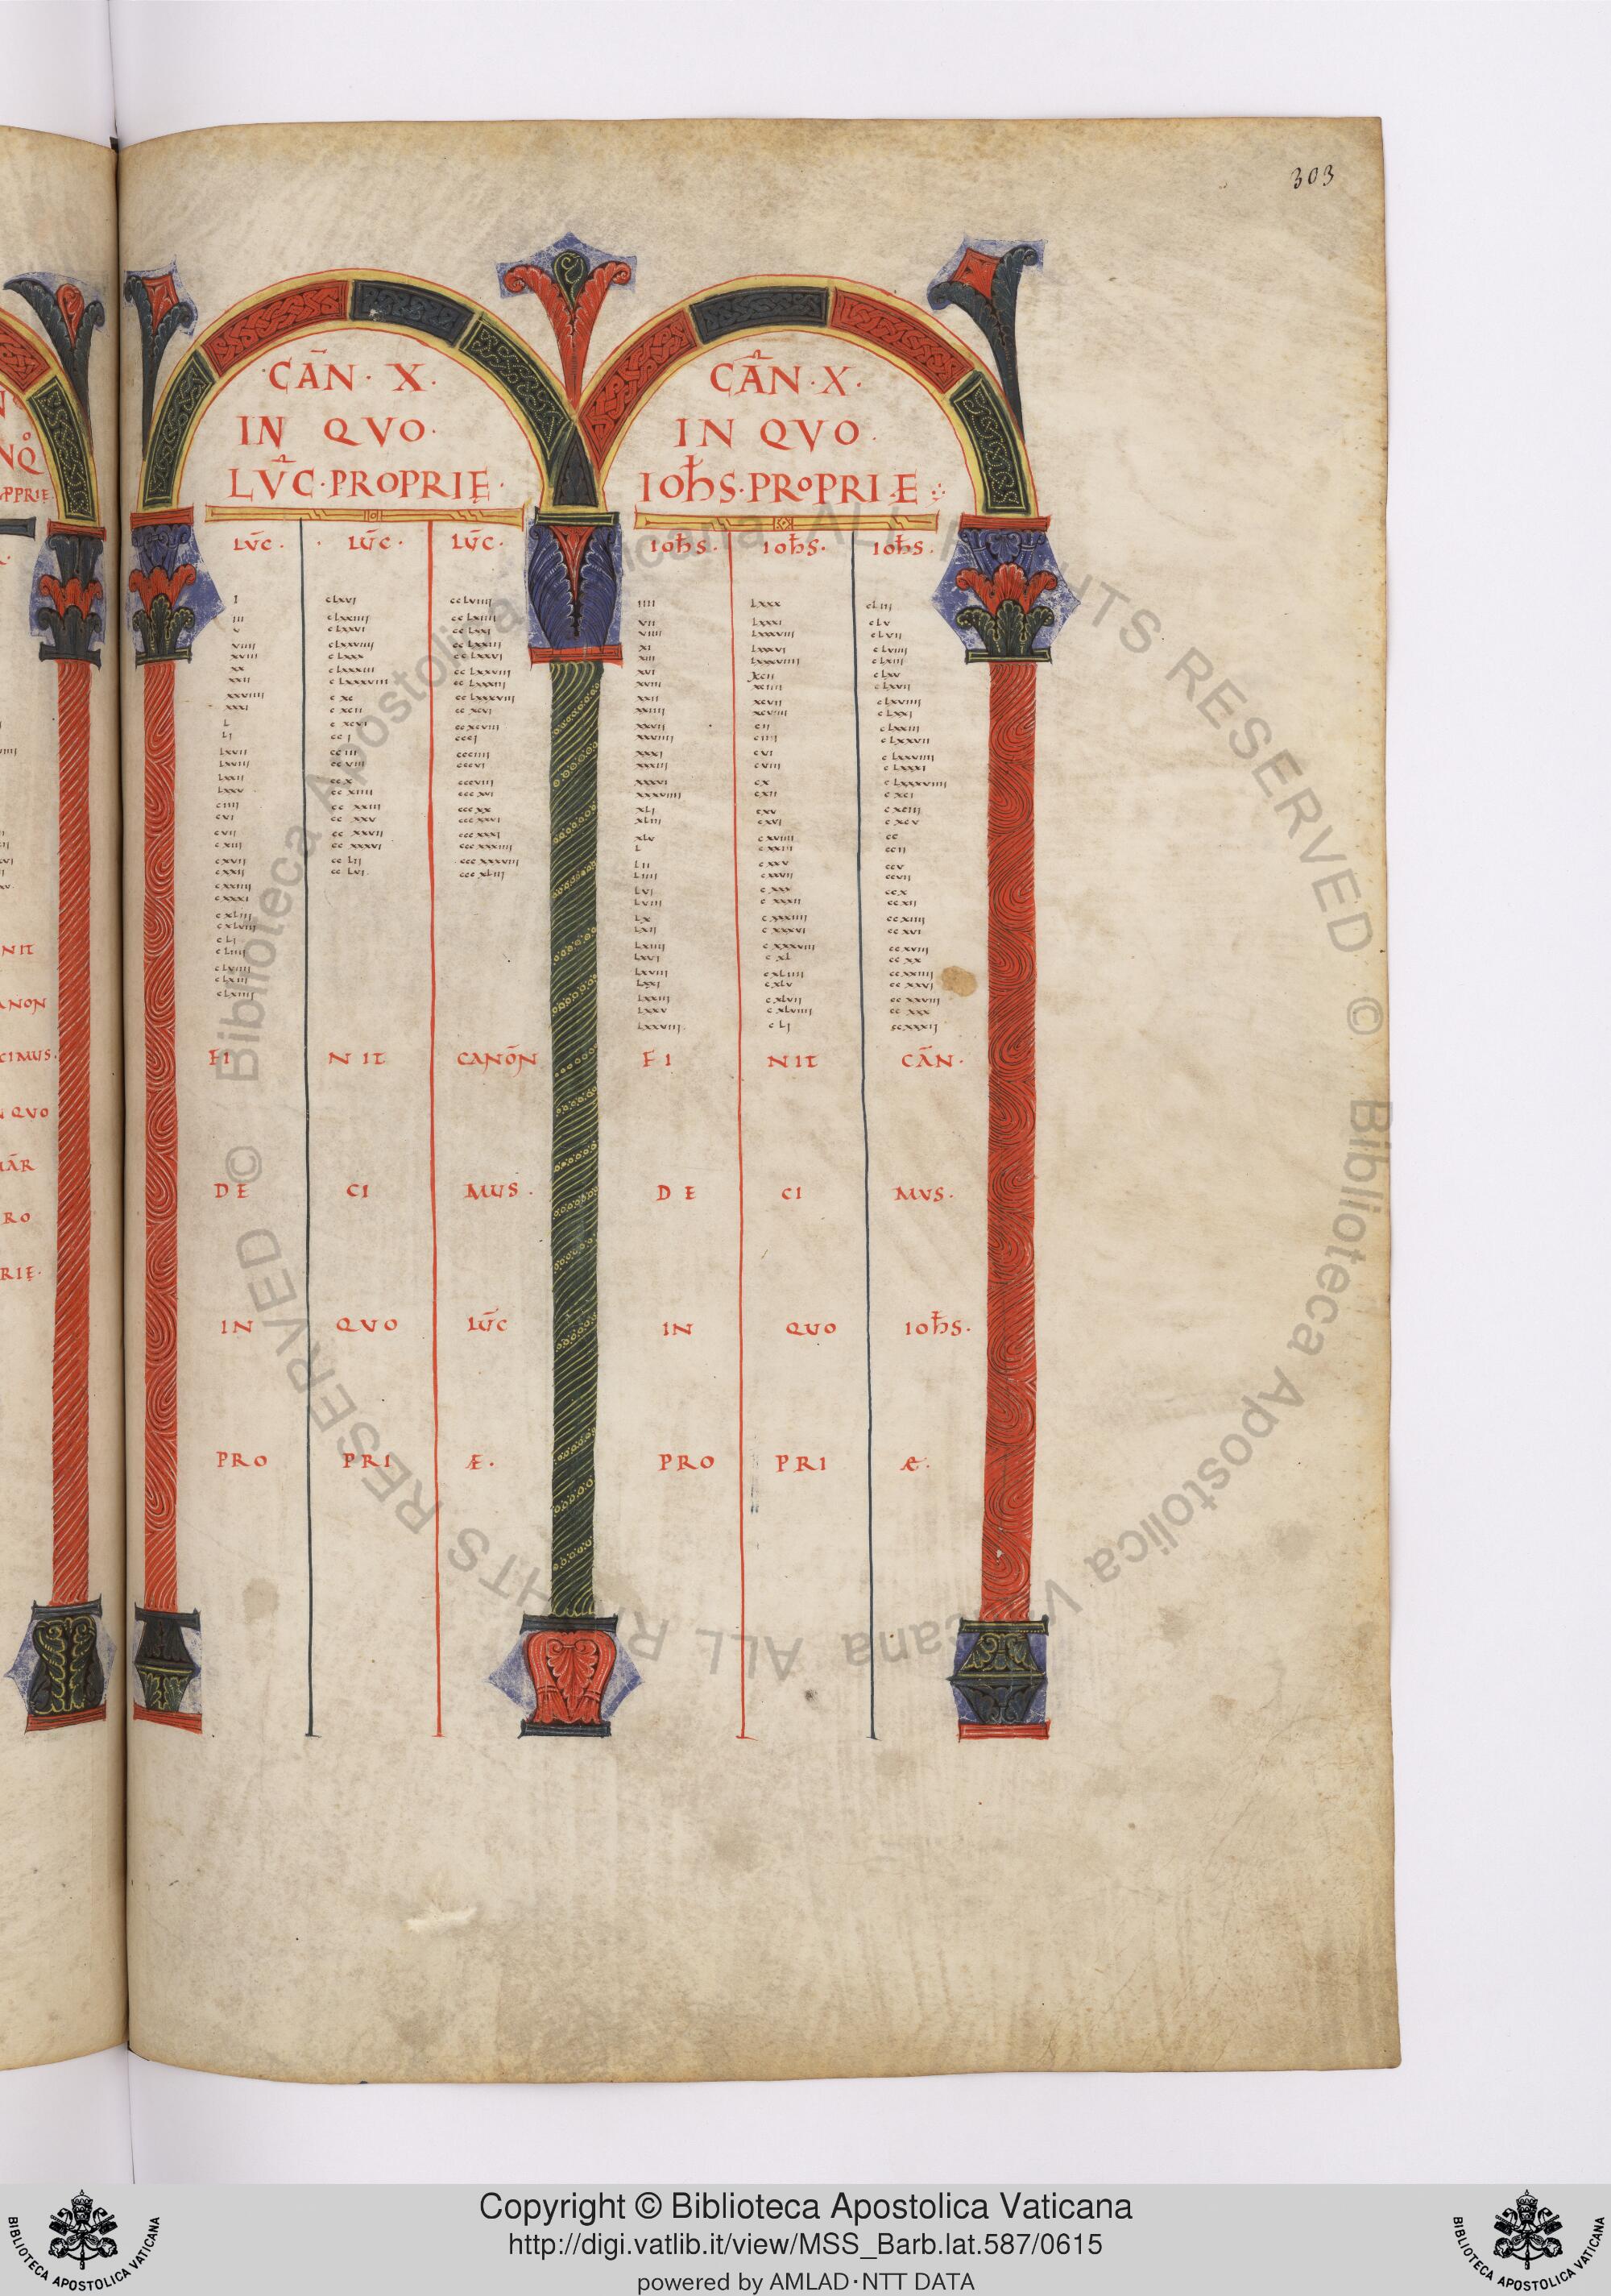 303
·CAN·X·
IN QVO·
LVC·PROPRIĘ·
LVC·
I
iii
v
viiii
xviii
xx
xxii
xxviiii
xxxi
L
Li
Lxvii
Lxviii
Lxxii
Lxxv
ciiii
cvi
cvii
cxiii
cxvii
cxxii
cxxiiii
cxxxi
cxLiii
cxLviiii
cLi
cLiiii
cLviiii
cLxiii
cLxiiii
LVC·
cLxvi
cLxxiiii
cLxxvi
cLxxviiii
cLxxx
cLxxxiii
cLxxxviii
cxc
cxcii
cxcvi
cci
cciii
ccviii
ccx
ccxiiii
ccxxiiii
ccxxv
ccxxvii
ccxxxvi
ccLii
ccLvi
LVC·
ccLviiii
ccLxiiii
ccLxxi
ccLxxiii
ccLxxvi
ccLxxviii
ccLxxxiii
ccLxxxviii
ccxcvi
ccxcviii
ccci
ccciiii
cccvi
cccviiii
cccxvi
cccxx
cccxxvi
cccxxxi
cccxxxviiii
cccxLiii
FI NIT CANON
DE CI MUS·
IN QVO LVC
PRO PRI Æ·
CAN·X·
IN QVO·
IOħS·PROPRIÆ
IOħS·
iiii
vii
viiii
xi
xiii
xvi
xviii
xxii
xxiiii
xxvii
xxviiii
xxxi
xxxiii
xxxvi
xxxviiii
xLi
xLiii
xLv
L
Lii
Liiii
Lvi
Lviii
Lx
Lxii
Lxiiii
Lxvi
Lxviii
Lxxi
Lxxiii
Lxxv
Lxxviii
IOħS·
Lxxx
Lxxxi
Lxxxiiii
Lxxxvi
Lxxxviiii
xcii
xciiii
xcvii
xcviiii
cii
ciiii
cvi
cviii
cx
cxii
cxv
cxvi
cxviiii
cxxiii
cxxv
cxxvii
cxxx
cxxxii
cxxxiiii
cxxxvi
cxxxviiii
cxL
cxLiiii
cxLv
cxLvii
cxLviiii
cLi
IOħS·
cLiii
cLv
cLvii
cLviiii
cLxiii
cLxv
cLxvii
cLxviiii
cLxxi
cLxxiii
cLxxvii
cLxxviiii
cLxxxi
cLxxxviiii
cxci
cxciii
cxcv
cc
ccii
ccv
ccvii
ccx
ccxii
ccxiiii
ccxvi
ccxviii
ccxx
ccxxiiii
ccxxvi
ccxxviii
ccxxx
ccxxxii
FI NIT CAN·
DE CI MVS·
IN QVO IOħS·
PRO PRI Æ·
NIT
ANON
CIMUS·
QVO
MAR
RO
RIĘ·
© Biblioteca Apostolica Vaticana ALL RIGHTS RESERVED © Biblioteca Apostolica Vaticana ALL RIGHTS RESERVED
Copyright © Biblioteca Apostolica Vaticana
http://digi.vatlib.it/view/MSS_Barb.lat.587/0615
powered by AMLAD·NTT DATA
BIBLIOTECA APOSTOLICA VATICANA
BIBLIOTECA APOSTOLICA VATICANA